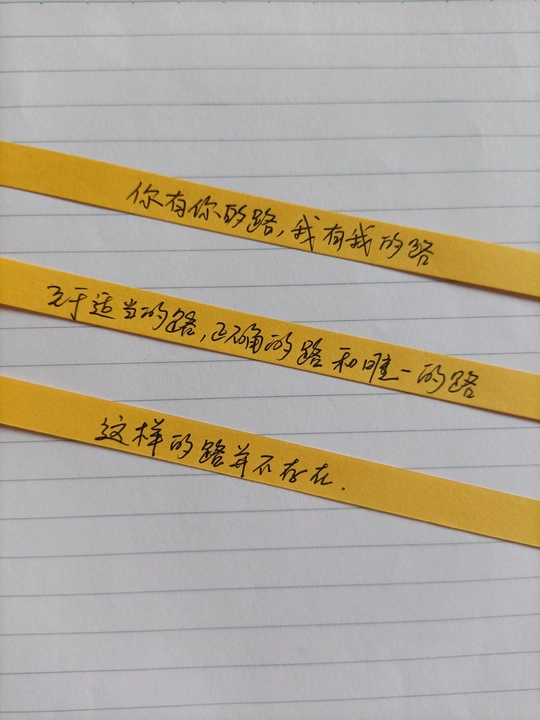 你有你的路,我有我的路
至于适当的路,正确的路和唯一的路
这样的路并不存在.